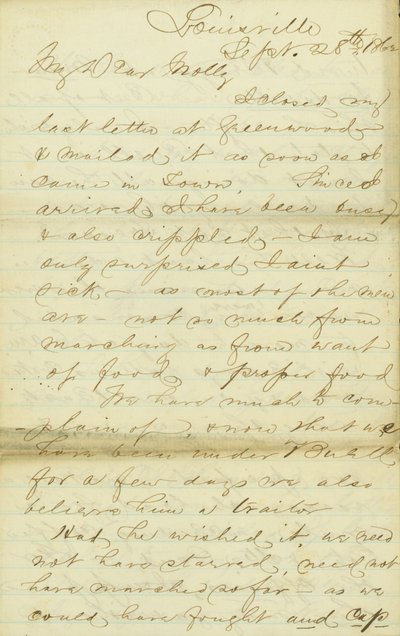 Louisville
Sept. 28th 1862
My Dear Molly
I closed my
last letter at Greenwood
& mailed it as soon as I
came in Town. Since I
arrived I have been busy
& also crippled – I am
only surprised I aint
sick – as most of the men
are – not so much from
marching as from want
of food & proper food
We have much to com-
-plain of, & now that we
have been under Buell
for a few days we also
believe him a traitor
Had he wished it, we need
not have starved, need not
have marched so far – as we
could have fought and cap